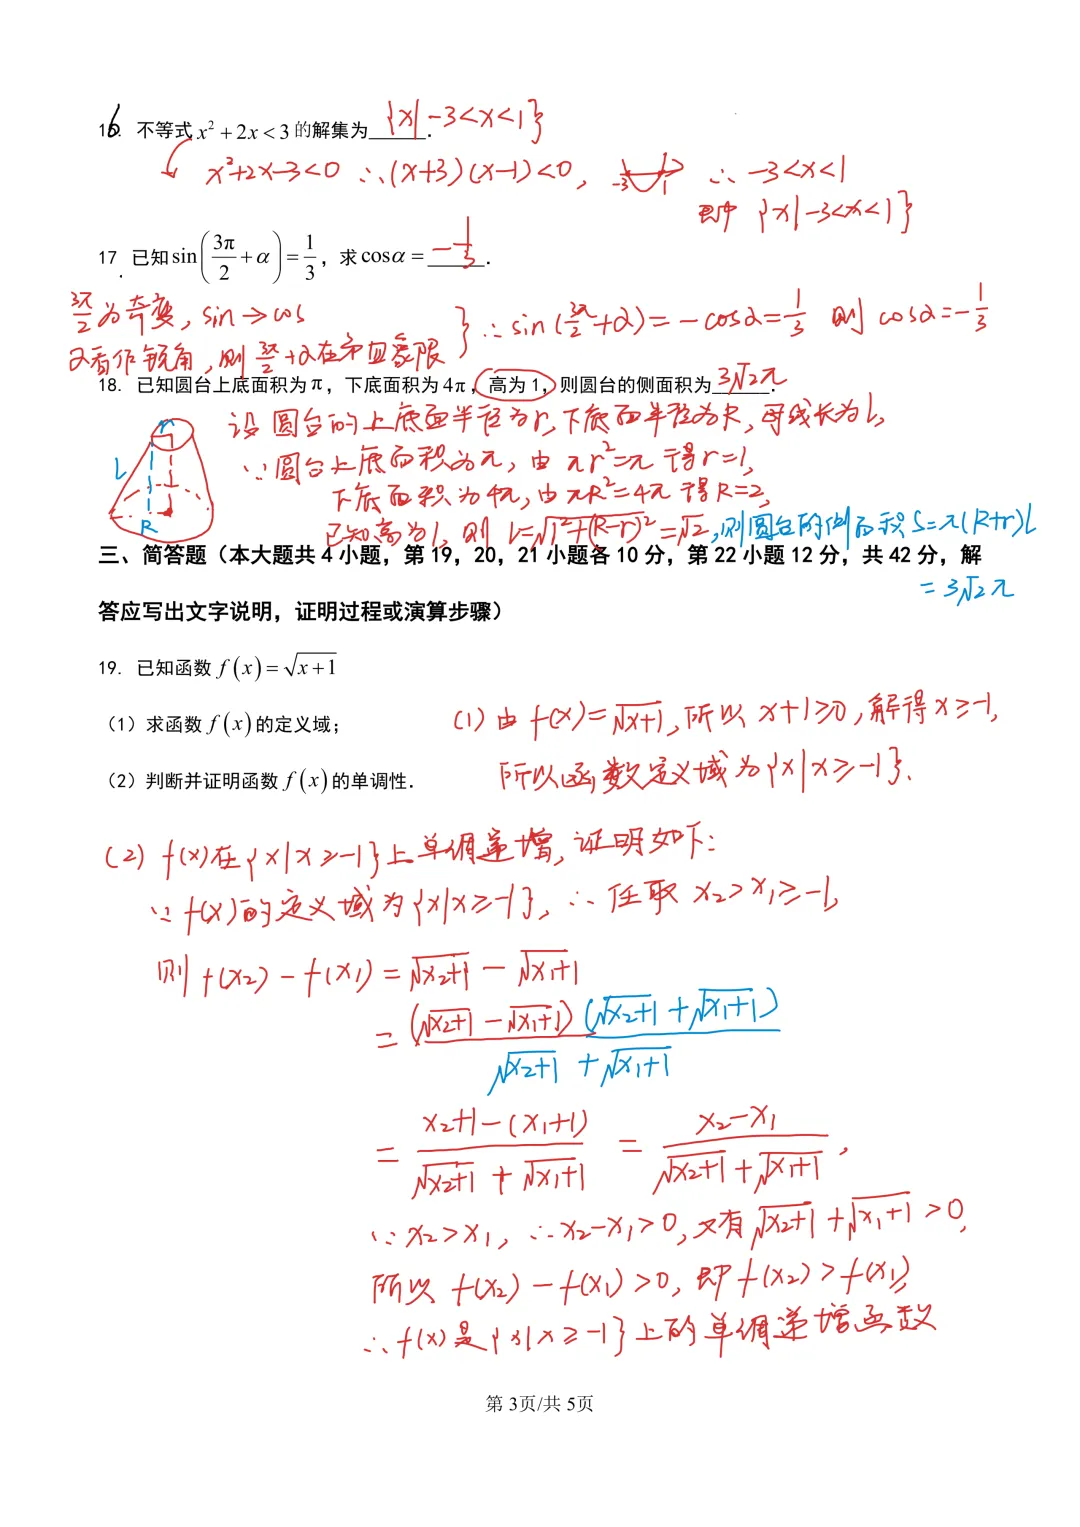 16. 不等式 x² + 2x < 3 的解集为 {x|-3<x<1} .
x²+2x-3<0 ∴(x+3)(x-1)<0, -3 1 ∴ -3<x<1
即 {x|-3<x<1}
17. 已知 sin(3π/2 + α) = 1/3 ，求 cosα = -1/3 .
3π/2 为奇变, sin→cos
α看作锐角, 则 3π/2+α在第四象限 } ∴ sin(3π/2+α)= -cosα = 1/3 则 cosα = -1/3
18. 已知圆台上底面积为 π ，下底面积为 4π ，高为 1，则圆台的侧面积为 3√2π .
设圆台的上底面半径为r, 下底面半径为R, 母线长为l,
∵圆台上底面积为π, 由 πr²=π 得 r=1,
下底面积为4π, 由πR²=4π 得R=2,
已知高为1, 则 l=√(1²+(R-r)²)=√2, 则圆台的侧面积S=π(R+r)l
= 3√2π
r
l
R
三、简答题（本大题共 4 小题，第 19，20，21 小题各 10 分，第 22 小题 12 分，共 42 分，解
答应写出文字说明，证明过程或演算步骤）
19. 已知函数 f(x) = √(x+1)
（1）求函数 f(x) 的定义域；
(1) 由 f(x)=√(x+1), 所以 x+1≥0, 解得 x≥-1,
所以函数定义域为{x|x≥-1}.
（2）判断并证明函数 f(x) 的单调性.
(2) f(x)在{x|x≥-1}上单调递增, 证明如下:
∵ f(x)的定义域为{x|x≥-1}, ∴ 任取 x₂>x₁≥-1,
则 f(x₂)-f(x₁) = √(x₂+1) - √(x₁+1)
= (√(x₂+1) - √(x₁+1))(√(x₂+1) + √(x₁+1)) / (√(x₂+1) + √(x₁+1))
= (x₂+1-(x₁+1)) / (√(x₂+1) + √(x₁+1)) = (x₂-x₁) / (√(x₂+1) + √(x₁+1)) ,
∵ x₂>x₁, ∴ x₂-x₁>0, 又有 √(x₂+1) + √(x₁+1) >0,
所以 f(x₂)-f(x₁)>0, 即 f(x₂)>f(x₁)
∴ f(x)是{x|x≥-1}上的单调递增函数
第 3页/共 5页